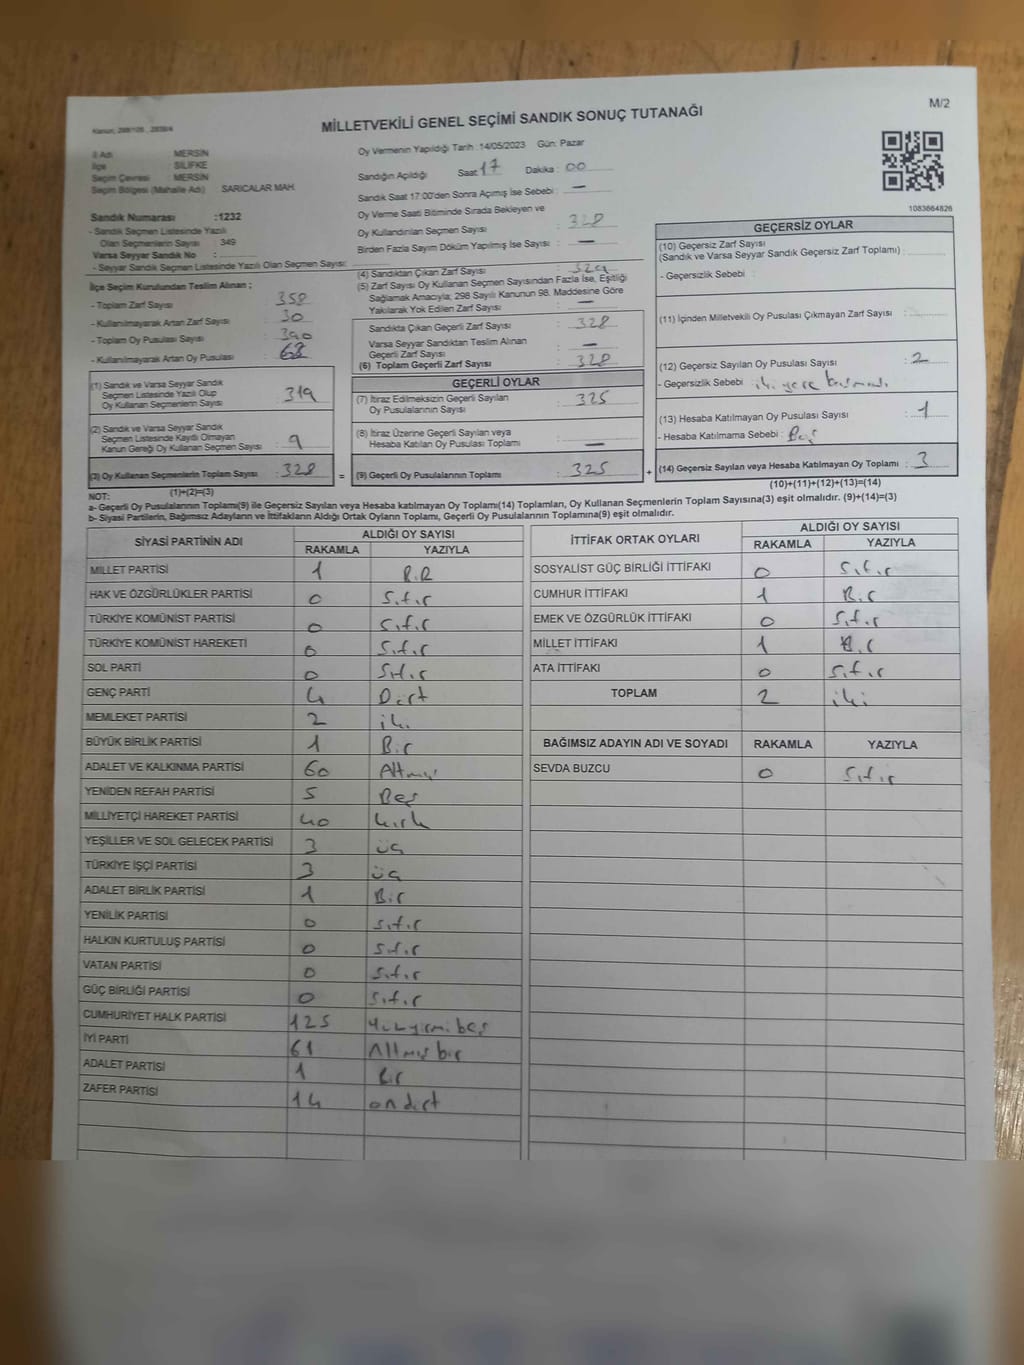 M/2
MİLLETVEKİLİ GENEL SEÇİMİ SANDIK SONUÇ TUTANAĞI
İl Adı : MERSİN
İlçe : SİLİFKE
Seçim Çevresi : MERSİN
Seçim Bölgesi (Mahalle Adı) SARICALAR MAH.
Sandık Numarası :1232
- Sandık Seçmen Listesinde Yazılı
Olan Seçmenlerin Sayısı : 349
Varsa Seyyar Sandık No :
- Seyyar Sandık Seçmen Listesinde Yazılı Olan Seçmen Sayısı:
İlçe Seçim Kurulundan Teslim Alınan ;
- Toplam Zarf Sayısı : 358
- Kullanılmayarak Artan Zarf Sayısı : 30
- Toplam Oy Pusulası Sayısı : 390
- Kullanılmayarak Artan Oy Pusulası : 62
(1) Sandık ve Varsa Seyyar Sandık
Seçmen Listesinde Yazılı Olup
Oy Kullanan Seçmenlerin Sayısı : 319
(2) Sandık ve Varsa Seyyar Sandık
Seçmen Listesinde Kayıtlı Olmayan
Kanun Gereği Oy Kullanan Seçmen Sayısı : 9
(3) Oy Kullanan Seçmenlerin Toplam Sayısı : 328
(1)+(2)=(3)
Oy Vermenin Yapıldığı Tarih : 14/05/2023 Gün: Pazar
Sandığın Açıldığı Saat : 17 Dakika : 00
Sandık Saat 17:00'den Sonra Açımış İse Sebebi : —
Oy Verme Saati Bitiminde Sırada Bekleyen ve
Oy Kullandırılan Seçmen Sayısı : 328
Birden Fazla Sayım Döküm Yapılmış İse Sayısı : —
(4) Sandıktan Çıkan Zarf Sayısı : 329
(5) Zarf Sayısı Oy Kullanan Seçmen Sayısından Fazla İse, Eşitliği
Sağlamak Amacıyla; 298 Sayılı Kanunun 98. Maddesine Göre
Yakılarak Yok Edilen Zarf Sayısı : —
Sandıkta Çıkan Geçerli Zarf Sayısı : 328
Varsa Seyyar Sandıktan Teslim Alınan
Geçerli Zarf Sayısı : —
(6) Toplam Geçerli Zarf Sayısı : 328
GEÇERLİ OYLAR
(7) İtiraz Edilmeksizin Geçerli Sayılan
Oy Pusulalarının Sayısı : 325
(8) İtiraz Üzerine Geçerli Sayılan veya
Hesaba Katılan Oy Pusulası Toplamı : —
= (9) Geçerli Oy Pusulalarının Toplamı : 325 +
1083664826
GEÇERSİZ OYLAR
(10) Geçersiz Zarf Sayısı
(Sandık ve Varsa Seyyar Sandık Geçersiz Zarf Toplamı) :
- Geçersizlik Sebebi :
(11) İçinden Milletvekili Oy Pusulası Çıkmayan Zarf Sayısı :
(12) Geçersiz Sayılan Oy Pusulası Sayısı : 2
- Geçersizlik Sebebi : iki yere basımadı
(13) Hesaba Katılmayan Oy Pusulası Sayısı : 1
- Hesaba Katılmama Sebebi : Boş
(14) Geçersiz Sayılan veya Hesaba Katılmayan Oy Toplamı : 3
(10)+(11)+(12)+(13)=(14)
NOT:
a- Geçerli Oy Pusulalarının Toplamı(9) ile Geçersiz Sayılan veya Hesaba katılmayan Oy Toplamı(14) Toplamları, Oy Kullanan Seçmenlerin Toplam Sayısına(3) eşit olmalıdır. (9)+(14)=(3)
b- Siyasi Partilerin, Bağımsız Adayların ve İttifakların Aldığı Ortak Oyların Toplamı, Geçerli Oy Pusulalarının Toplamına(9) eşit olmalıdır.
SİYASİ PARTİNİN ADI ALDIĞI OY SAYISI
RAKAMLA YAZIYLA
MİLLET PARTİSİ 1 BİR
HAK VE ÖZGÜRLÜKLER PARTİSİ 0 Sıfır
TÜRKİYE KOMÜNİST PARTİSİ 0 Sıfır
TÜRKİYE KOMÜNİST HAREKETİ 0 Sıfır
SOL PARTİ 0 Sıfır
GENÇ PARTİ 4 Dört
MEMLEKET PARTİSİ 2 iki
BÜYÜK BİRLİK PARTİSİ 1 Bir
ADALET VE KALKINMA PARTİSİ 60 Altmış
YENİDEN REFAH PARTİSİ 5 Beş
MİLLİYETÇİ HAREKET PARTİSİ 40 kırk
YEŞİLLER VE SOL GELECEK PARTİSİ 3 üç
TÜRKİYE İŞÇİ PARTİSİ 3 üç
ADALET BİRLİK PARTİSİ 1 Bir
YENİLİK PARTİSİ 0 Sıfır
HALKIN KURTULUŞ PARTİSİ 0 Sıfır
VATAN PARTİSİ 0 Sıfır
GÜÇ BİRLİĞİ PARTİSİ 0 Sıfır
CUMHURİYET HALK PARTİSİ 125 Yüzyirmibeş
İYİ PARTİ 61 Altmışbir
ADALET PARTİSİ 1 Bir
ZAFER PARTİSİ 14 ondört
İTTİFAK ORTAK OYLARI ALDIĞI OY SAYISI
RAKAMLA YAZIYLA
SOSYALİST GÜÇ BİRLİĞİ İTTİFAKI 0 Sıfır
CUMHUR İTTİFAKI 1 Bir
EMEK VE ÖZGÜRLÜK İTTİFAKI 0 Sıfır
MİLLET İTTİFAKI 1 Bir
ATA İTTİFAKI 0 Sıfır
TOPLAM 2 iki
BAĞIMSIZ ADAYIN ADI VE SOYADI RAKAMLA YAZIYLA
SEVDA BUZCU 0 Sıfır